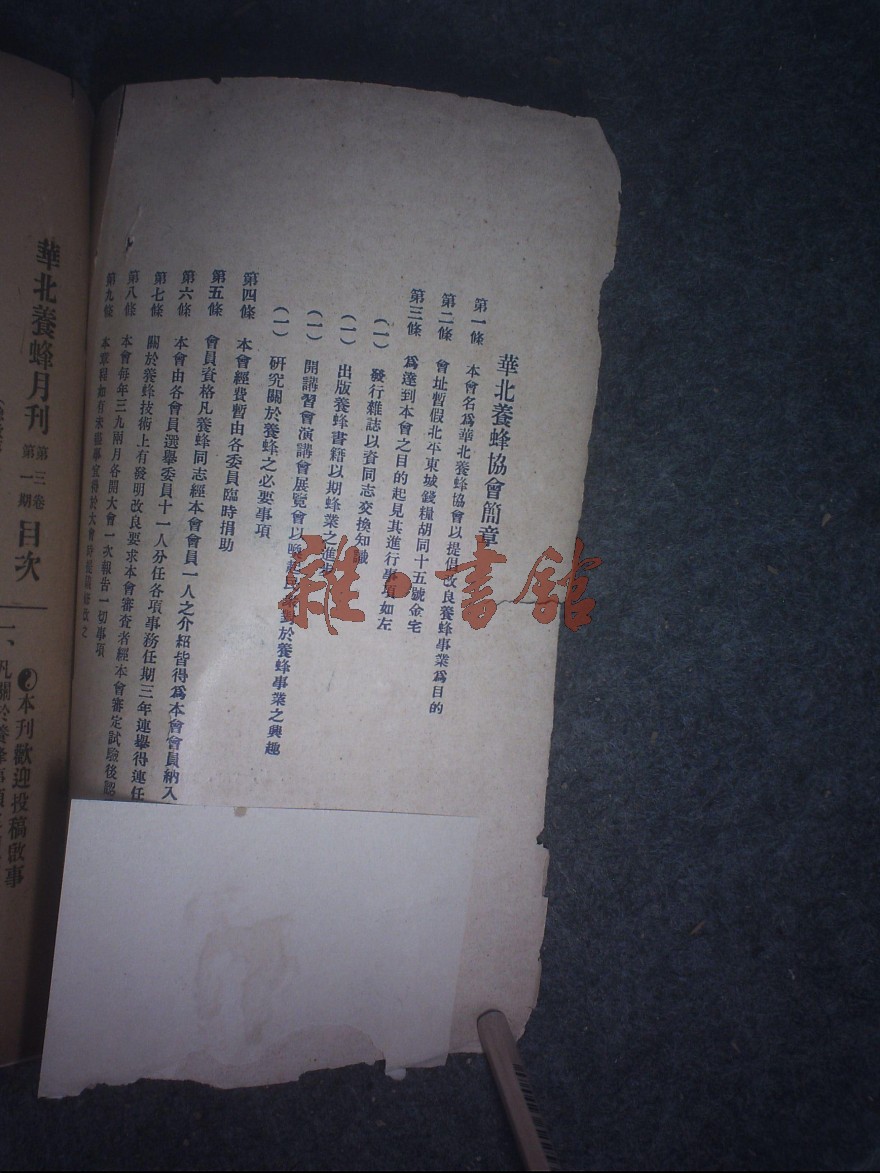 華北養蜂協會簡章
第一條 本會名爲華北養蜂協會以提倡改良養蜂事業爲目的
第二條 會址暫假北平東城錢糧胡同十五號金宅
第三條 爲達到本會之目的起見其進行事項如左
(一) 發行雜誌以資同志交換知識
(一) 出版養蜂書籍以期蜂業之進步
(一) 開講習會演講會展覽會以喚起民衆對於養蜂事業之興趣
(一) 研究關於養蜂之必要事項
第四條 本會經費暫由各委員臨時捐助
第五條 會員資格凡養蜂同志經本會會員一人之介紹皆得爲本會會員納入
第六條 本會由各會員選舉委員十一人分任各項事務任期三年連舉得連任
第七條 關於養蜂技術上有發明改良要求本會審查者經本會審定試驗後認
第八條 本會每年三九兩月各開大會一次報告一切事項
第九條 本章程如有未盡事宜得於大會時提議修改之
華北養蜂月刊 第三卷第一期 目次
本刊歡迎投稿啟事
一、凡關於養蜂事項
雜·書館